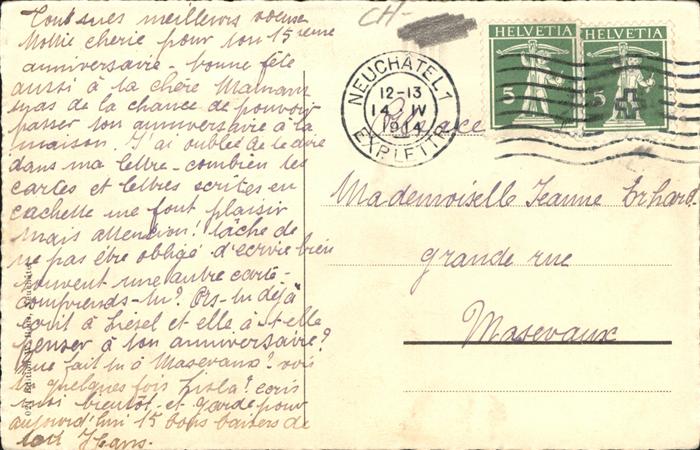 Tous mes meilleurs voeux
Mollie cherie pour ton 15ieme
anniversaire - bonne fête
aussi à la chère Maman
mas de la chance de pouvoir
passer ton anniversaire à la
maison. J'ai oublié de te dire
dans ma lettre - combien tes
cartes et lettres écrites en
cachette me font plaisir
mais attention! tâche de
ne pas être obligé d'écrire bien
souvent une autre carte -
comprends-tu? As-tu déjà
écrit à Liesel et elle a-t-elle
penser à ton anniversaire?
Que fait tu à Masevaux? vois
tu quelques fois Lisla? ecris
aussi bientôt - et garde pour
aujourd'hui 15 bons baisers de
ton Hans.
CH-
HELVETIA
5
HELVETIA
5
NEUCHÂTEL-1
12-13
14 IV
1914
EXP. LETTR.
Alsace
Mademoiselle Jeanne Erhard
grande rue
Masevaux